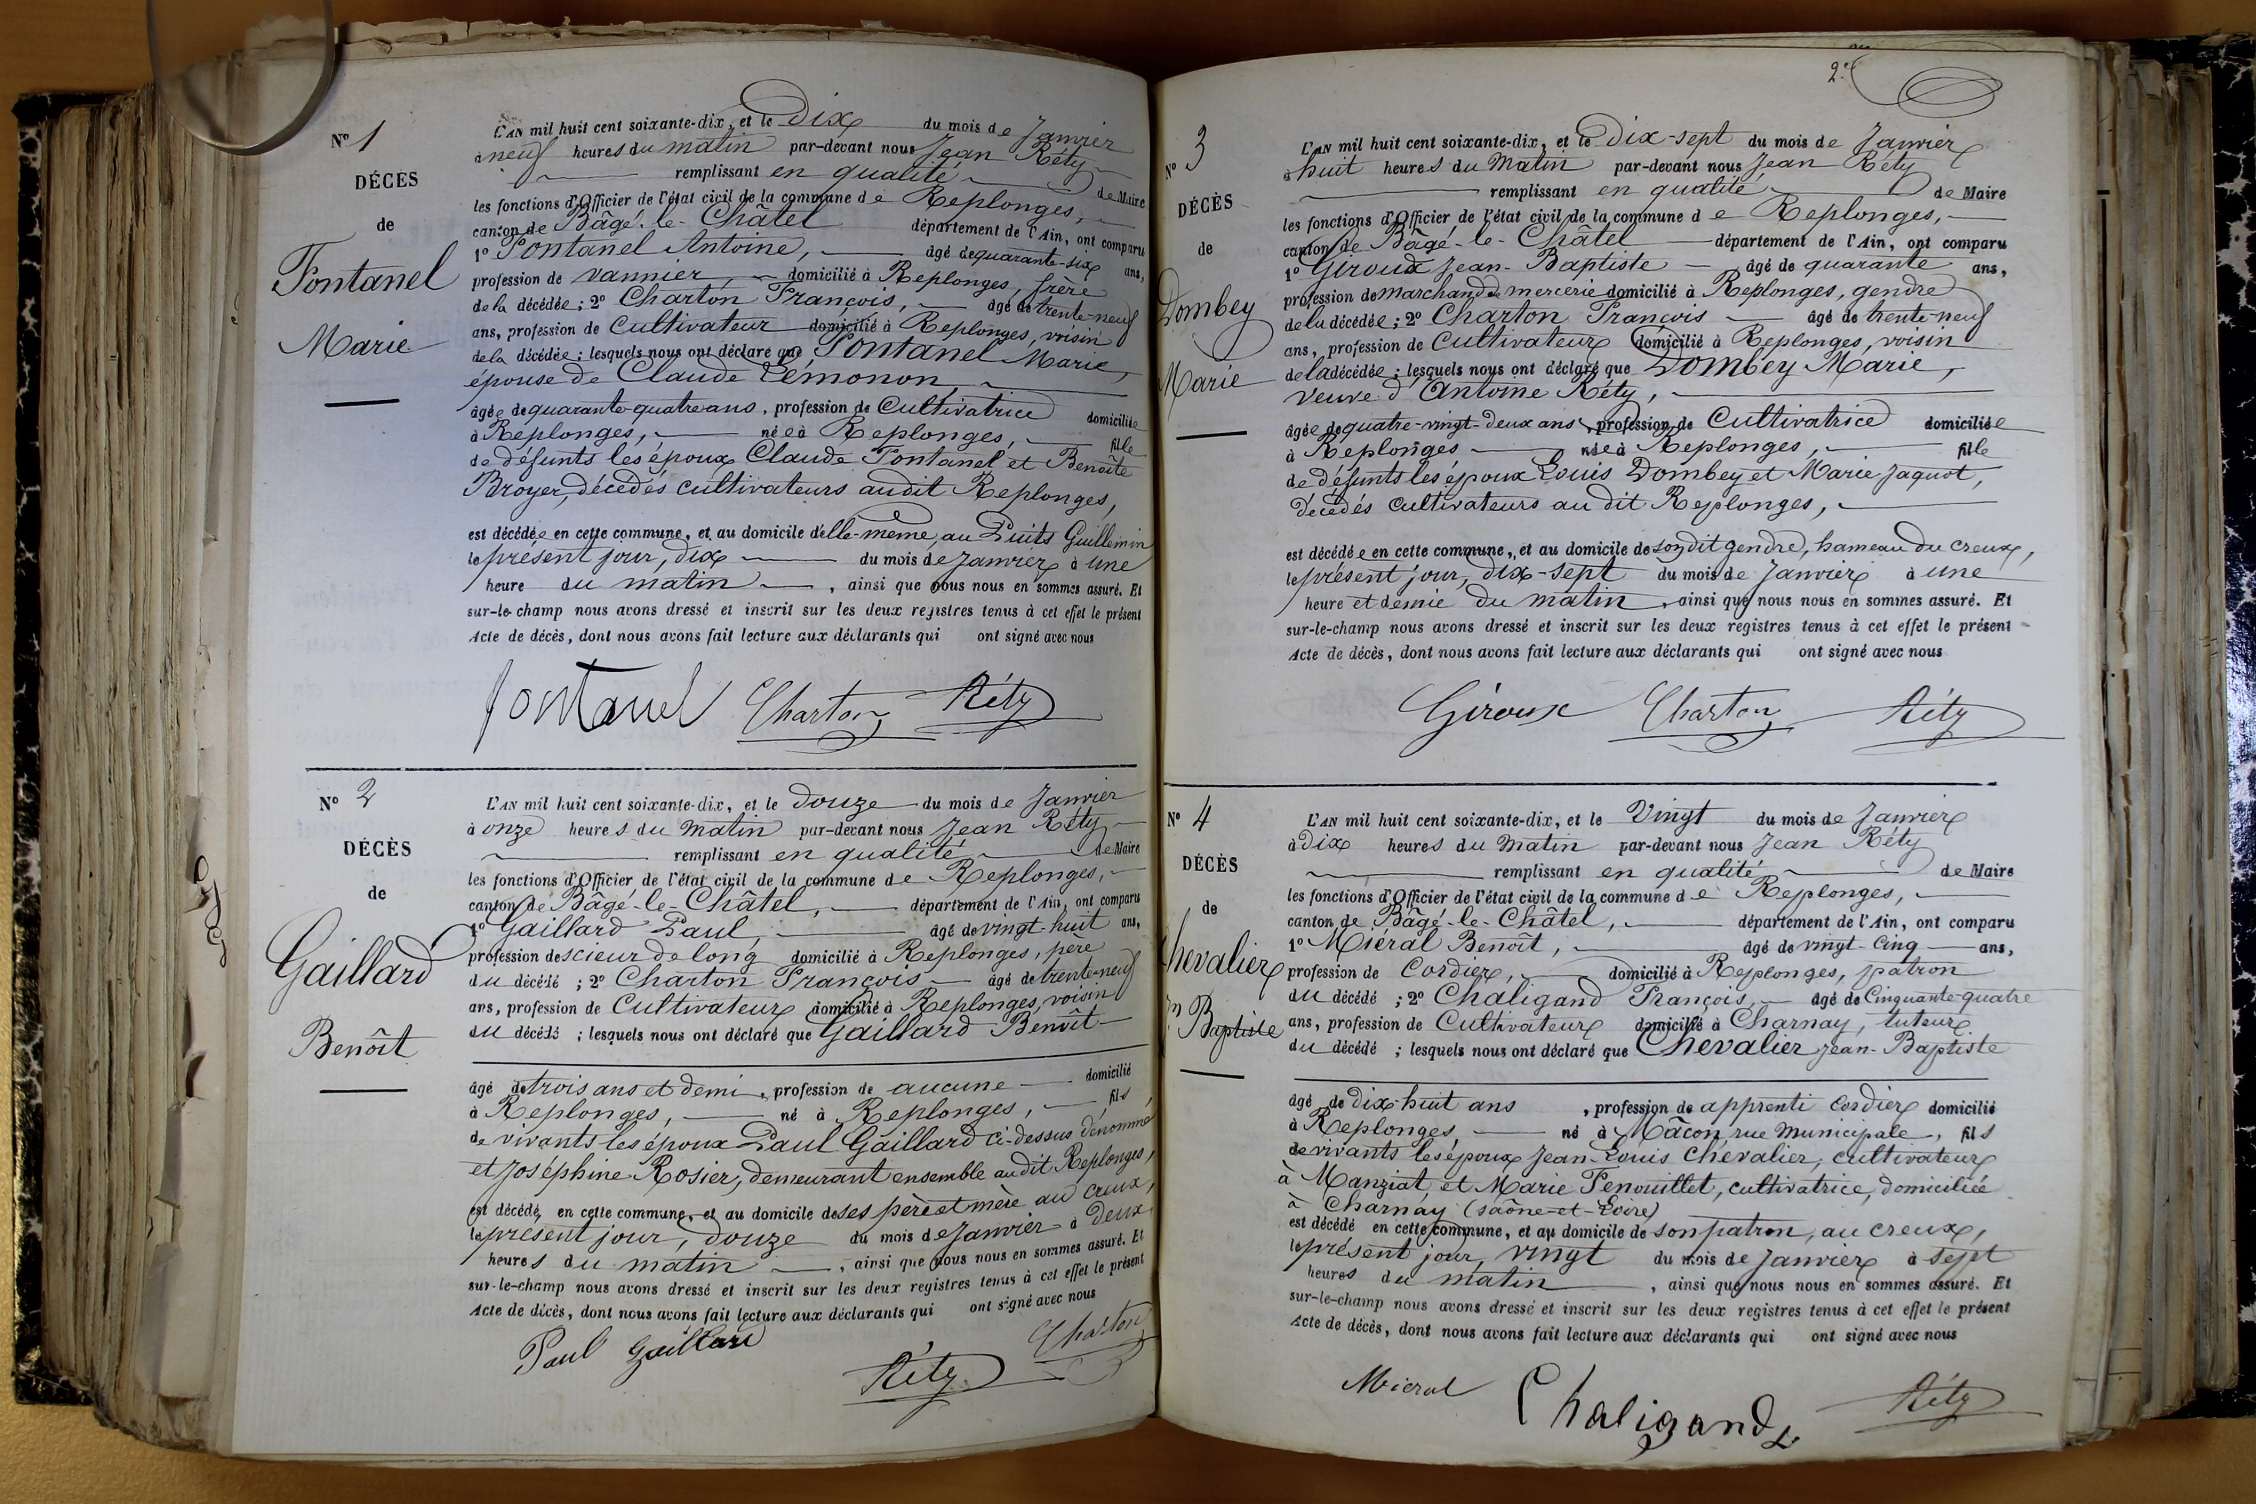 Nº 1
DÉCÈS
de
Fontanel
Marie
L'AN mil huit cent soixante-dix, et le Dix du mois de Janvier
à neuf heures du matin par-devant nous Jean Réty
remplissant en qualité de Maire
les fonctions d'Officier de l'état civil de la commune de Replonges,
canton de Bâgé-le-Châtel département de l'Ain, ont comparu
1º Fontanel Antoine, âgé de quarante-six ans,
profession de vannier, domicilié à Replonges, frère
de la décédée; 2º Charton François, âgé de trente-neuf
ans, profession de Cultivateur domicilié à Replonges, voisin
de la décédée; lesquels nous ont déclaré que Fontanel Marie,
épouse de Claude Lémonon,
âgée de quarante-quatre ans, profession de Cultivatrice domiciliée
à Replonges, née à Replonges, fille
de défunts les époux Claude Fontanel et Benoîte
Broyer, décédés cultivateurs audit Replonges,
est décédée en cette commune, et au domicile d'elle-même, au Puits Guillemin
le présent jour, dix du mois de Janvier à une
heure du matin, ainsi que nous nous en sommes assuré. Et
sur-le-champ nous avons dressé et inscrit sur les deux registres tenus à cet effet le présent
Acte de décès, dont nous avons fait lecture aux déclarants qui ont signé avec nous
fontanel Charton Réty
Nº 2
DÉCÈS
de
Gaillard
Benoît
L'AN mil huit cent soixante-dix, et le douze du mois de Janvier
à onze heures du matin par-devant nous Jean Réty
remplissant en qualité de Maire
les fonctions d'Officier de l'état civil de la commune de Replonges,
canton de Bâgé-le-Châtel, département de l'Ain, ont comparu
1º Gaillard Paul, âgé de vingt-huit ans,
profession de scieur de long domicilié à Replonges, père
du décédé; 2º Charton François âgé de trente-neuf
ans, profession de Cultivateur domicilié à Replonges, voisin
du décédé; lesquels nous ont déclaré que Gaillard Benoît
âgé de trois ans et demi, profession de aucune domicilié
à Replonges, né à Replonges, fils
de vivants les époux Paul Gaillard ci-dessus dénommé
et Joséphine Rosier, demeurant ensemble audit Replonges,
est décédé, en cette commune, et au domicile de ses père et mère au creux,
le présent jour, douze du mois de Janvier à deux
heures du matin, ainsi que nous nous en sommes assuré. Et
sur-le-champ nous avons dressé et inscrit sur les deux registres tenus à cet effet le présent
Acte de décès, dont nous avons fait lecture aux déclarants qui ont signé avec nous
Paul Gaillard Réty Charton
2.
Nº 3
DÉCÈS
de
Dombey
Marie
L'AN mil huit cent soixante-dix, et le Dix-sept du mois de Janvier
à huit heures du Matin par-devant nous Jean Réty
remplissant en qualité de Maire
les fonctions d'Officier de l'état civil de la commune de Replonges,
canton de Bâgé-le-Châtel département de l'Ain, ont comparu
1º Giroux Jean-Baptiste âgé de quarante ans,
profession de marchand de mercerie domicilié à Replonges, gendre
de la décédée; 2º Charton François âgé de trente-neuf
ans, profession de Cultivateur domicilié à Replonges, voisin
de la décédée; lesquels nous ont déclaré que Dombey Marie,
veuve d'Antoine Réty,
âgée de quatre-vingt-deux ans, profession de Cultivatrice domiciliée
à Replonges née à Replonges, fille
de défunts les époux Louis Dombey et Marie Jaquot,
décédés cultivateurs au dit Replonges,
est décédée en cette commune, et au domicile de son dit gendre, hameau du creux,
le présent jour, dix-sept du mois de Janvier à une
heure et demie du matin, ainsi que nous nous en sommes assuré. Et
sur-le-champ nous avons dressé et inscrit sur les deux registres tenus à cet effet le présent
Acte de décès, dont nous avons fait lecture aux déclarants qui ont signé avec nous
Giroux Charton Réty
Nº 4
DÉCÈS
de
Chevalier
Baptiste
L'AN mil huit cent soixante-dix, et le Vingt du mois de Janvier
à Dix heures du matin par-devant nous Jean Réty
remplissant en qualité de Maire
les fonctions d'Officier de l'état civil de la commune de Replonges,
canton de Bâgé-le-Châtel, département de l'Ain, ont comparu
1º Miéral Benoît, âgé de vingt-cinq ans,
profession de Cordier, domicilié à Replonges, patron
du décédé; 2º Chaligand François, âgé de Cinquante-quatre
ans, profession de Cultivateur domicilié à Charnay, tuteur
du décédé; lesquels nous ont déclaré que Chevalier Jean-Baptiste
âgé de dix-huit ans, profession de apprenti Cordier domicilié
à Replonges, né à Mâcon, rue Municipale, fils
de vivants les époux Jean-Louis Chevalier, cultivateur
à Manziat, et Marie Penouillet, cultivatrice, domiciliée
à Charnay (Saône-et-Loire)
est décédé en cette commune, et au domicile de son patron, au creux,
le présent jour, vingt du mois de Janvier à sept
heures du matin, ainsi que nous nous en sommes assuré. Et
sur-le-champ nous avons dressé et inscrit sur les deux registres tenus à cet effet le présent
Acte de décès, dont nous avons fait lecture aux déclarants qui ont signé avec nous
Mieral Chaligand Réty